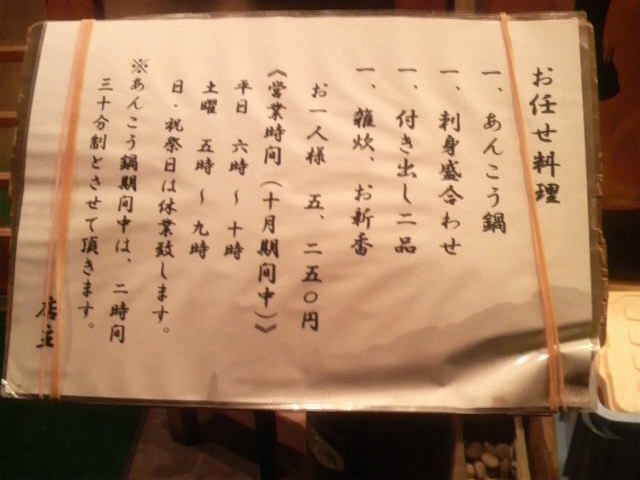 お任せ料理
一、あんこう鍋
一、刺身盛合わせ
一、付き出し二品
一、雑炊、お新香
お一人様　五、二五〇円
《営業時間（十月期間中）》
平日　六時〜十時
土曜　五時〜九時
日・祝祭日は休業致します。
※あんこう鍋期間中は、二時間
三十分制とさせて頂きます。
店主